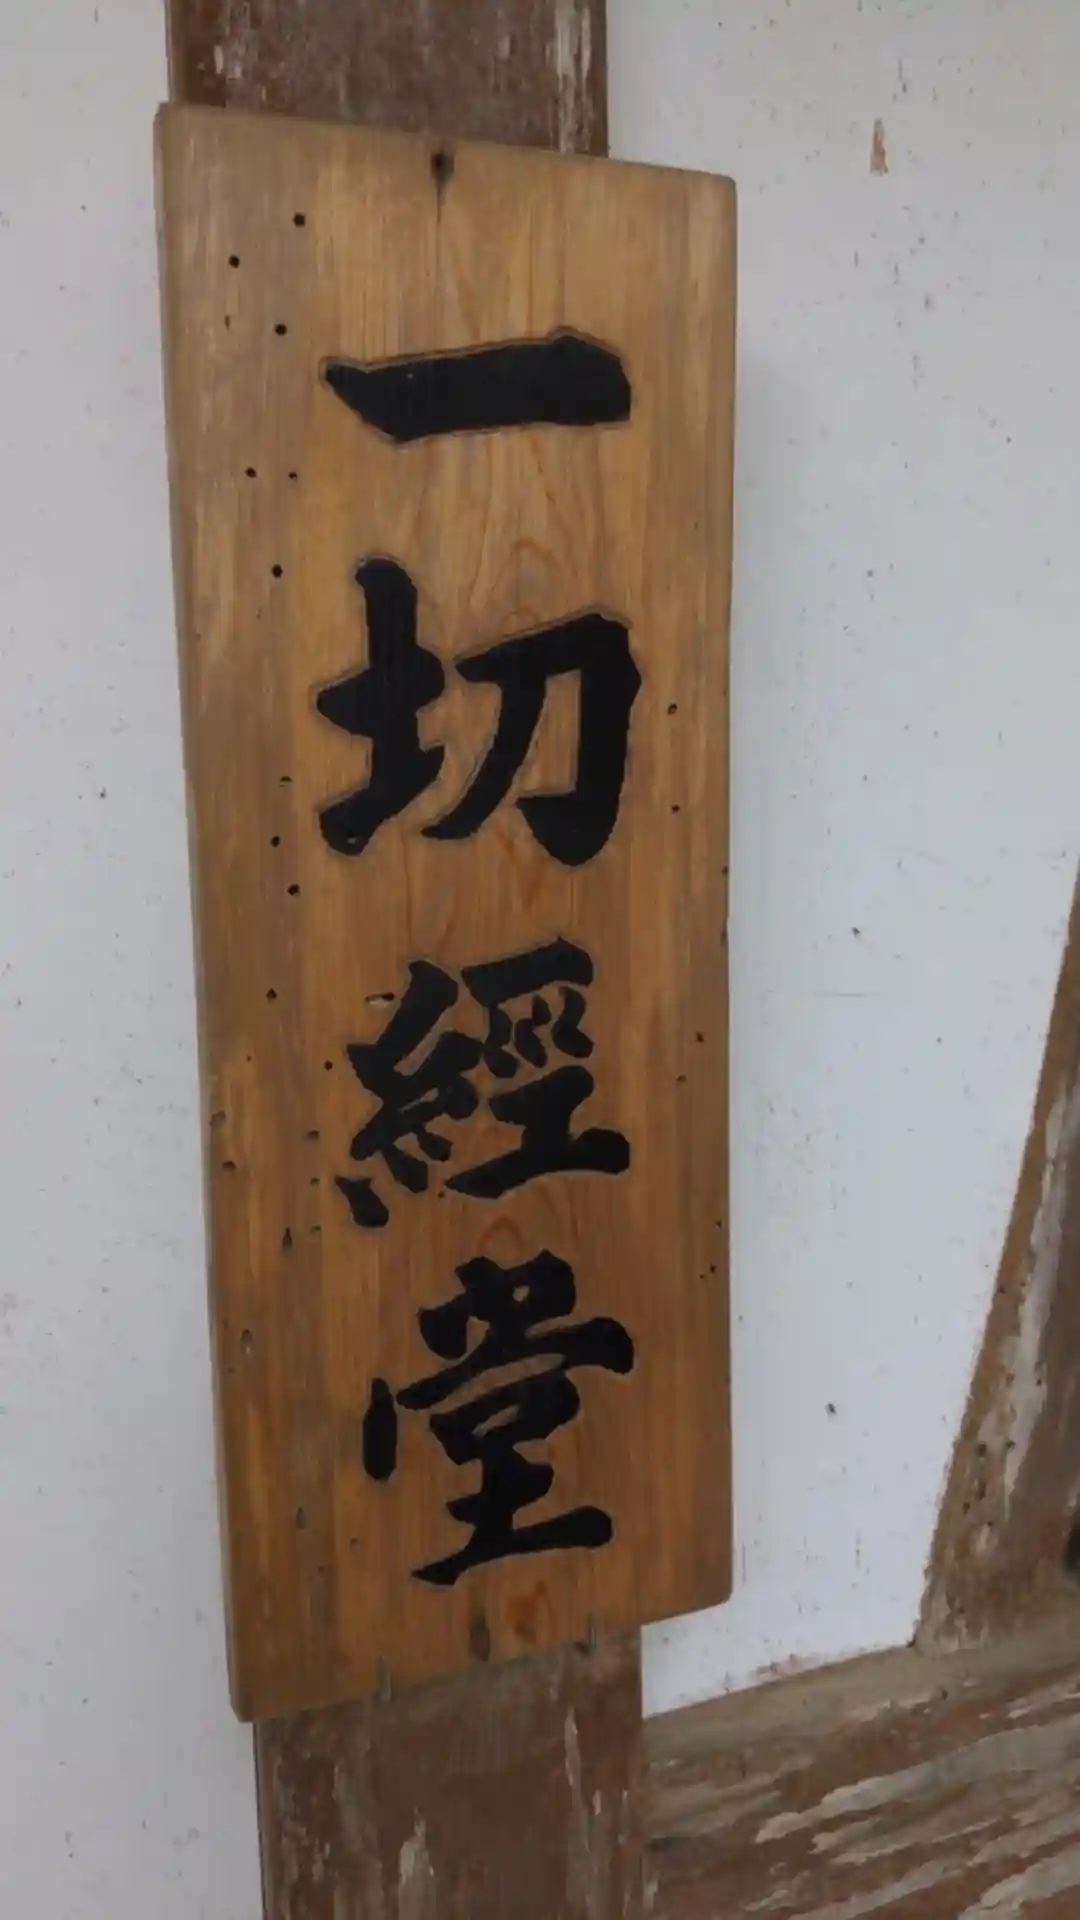 一切經堂